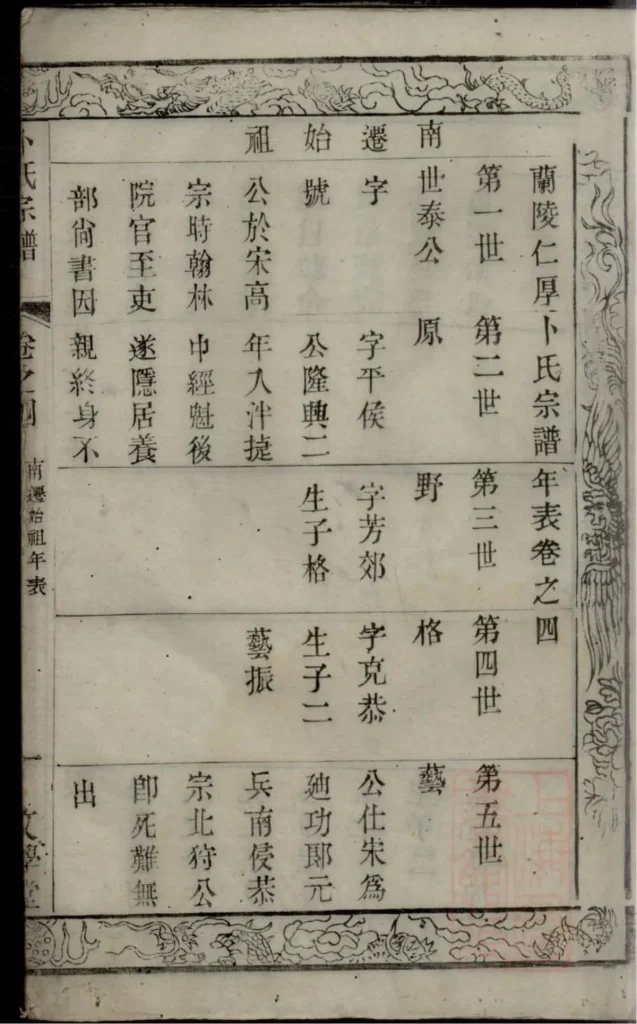 蘭陵仁厚卜氏宗譜 年表卷之四
南遷始祖
第一世
世泰公
字
號
公於宋高
宗時翰林
院官至吏
部尙書因
第二世
原
字平侯
公隆興二
年入泮捷
中經魁後
遂隱居養
親終身不
第三世
野
字芳郊
生子格
第四世
格
字克恭
生子二
藝振
第五世
藝
公仕宋為
廸功郎元
兵南侵恭
宗北狩公
卽死難無
出
卜氏宗譜
卷之四
南遷始祖年表
一
文學堂